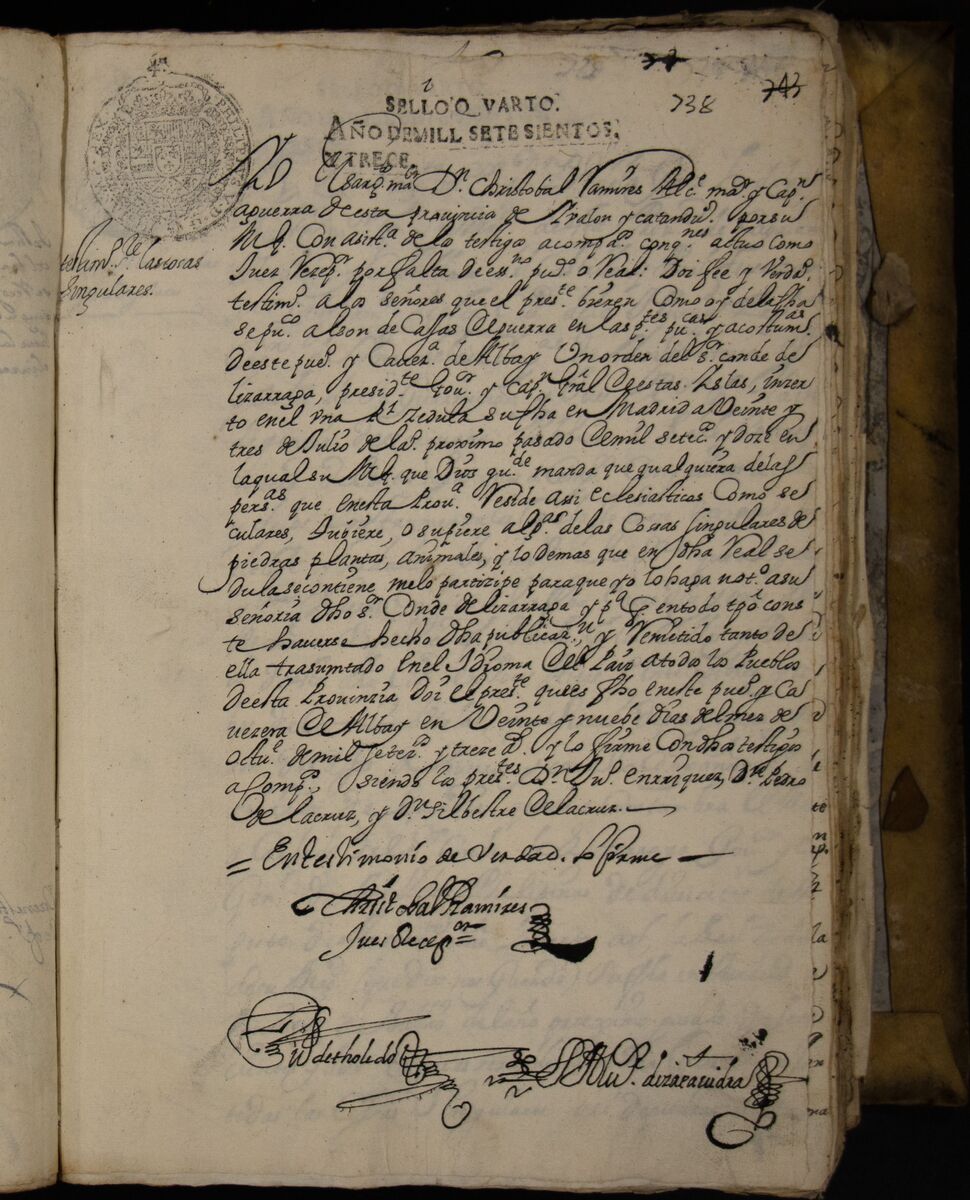 738
SELLO QVARTO.
AÑO DE MILL SETE SIENTOS,
Y TRECE.
testim.º
las cosas
singulares.
Yo
Dn. Christobal Ramires Alc.e maor y Cap.n
aguerra de esta Provincia de y catandu.s por su
Mg. Con asist.a de los testigos acomp.os con q.nes actuo como
Juez Rezep.r por falta de ess.no pu.co o Real: Doi fee y Verda.o
testim.o a los señores que el pres.te bieren Como oy de la fha
se pu.co al son de Caxas de guerra en las p.tes pu.cas y acostum.as
de este pue.o y Cavez.a de Albay Un orden del s.r conde de
lizarraga, presid.te Gou.or y Cap.n Gral de estas Islas, inzer
to en el vna R.l zedula su fha en Madrid a Veinte y
tres de Julio de la.o proximo pasado de mil setec.s y doze en
la qual su Mg. que Dios gu.de manda que qualquiera de las
pers.as que en esta Prou.a Reside assi eclesiasticos Como se
culares, tubiere, o supiere alg.as de las Cosas singulares de
piedras plantas, animales, y lo demas que en dha Real se
dula se contiene me lo partizipe para que yo lo haga not.o a su
señoria dho s.r Conde de lizarraga y p.a q en todo tpo cons
te haverse hecho dha publicaz.n y Remitido tanto de
ella trasumtado en el Idioma del Pais a todos los Pueblos
de esta Provinzia doi el pres.te que es fho en este pue.o y Ca
vezera de Albay en Veinte y nuebe dias del mez de
Octu.e de mil setez.s y treze a.s y lo firme con dhos testigos
acomp.s, siendo los pres.tes Dn. Ju.o enrriquez, Dn. Pedro
de la cruz, y Dn. silbestre de la cruz.
= En testimonio de Verdad. lo firme
Christobal Ramires
Jues Recep.or
de tholedo